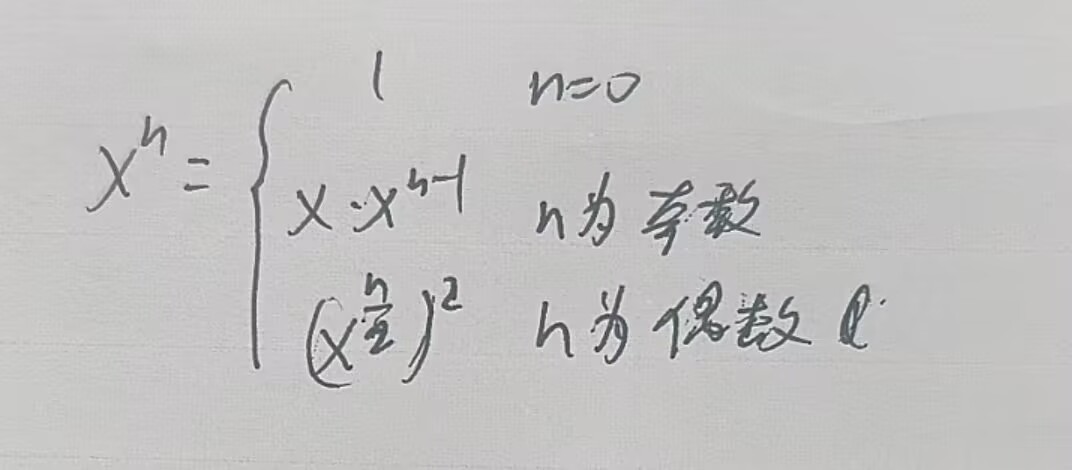 1 n=0
xⁿ = { x·xⁿ⁻¹ n为奇数
(x^(n/2))² n为偶数